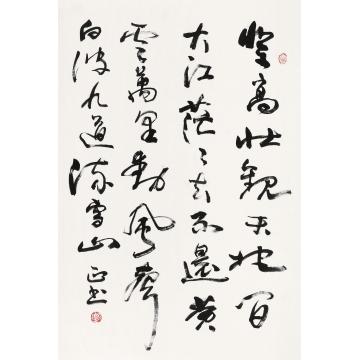 登高壮观天地间
大江茫茫去不还黄
云万里动风声
白波九道流雪山 正书